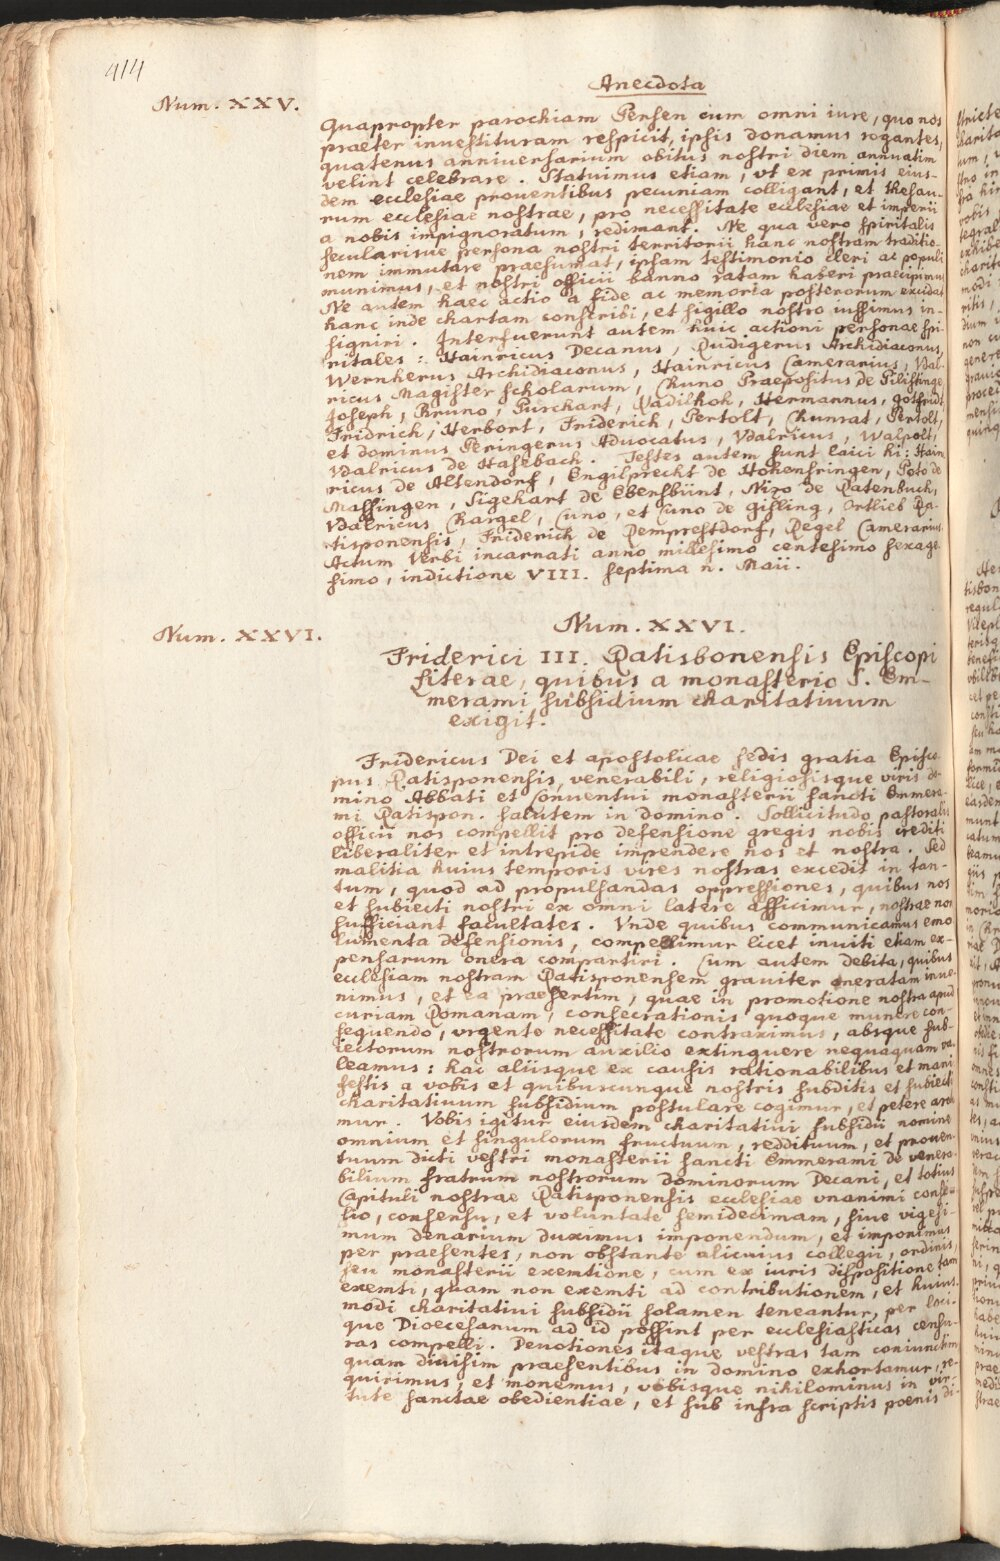 414
Anecdota
Num. XXV.
Quapropter parochiam Persen cum omni iure, quo nos
praeter inuestituram respicit, ipsis donamus rogantes,
quatenus anniuersarium obitus nostri diem annuatim
velint celebrare. Statuimus etiam, vt ex primis eius-
dem ecclesiae prouentibus pecuniam colligant, et thesau-
rum ecclesiae nostrae, pro necessitate ecclesiae et imperii
a nobis impignoratum, redimant. Ne qua vero spiritalis
secularisue persona nostri territorii hanc nostram traditio-
nem immutare praesumat, ipsam testimonio cleri ac populi
munimus, et nostri officii banno ratam haberi praecipimus
Ne autem haec actio a fide ac memoria posterorum excidat
hanc inde chartam conscribi, et sigillo nostro iussimus in-
signiri. Interfuerunt autem huic actioni personae spi-
ritales: Hainricus Decanus, Rudigerus Archidiaconus,
Wernherus Archidiaconus, Hainricus Camerarius, Vdal-
ricus Magister scholarum, Chuno Praepositus de Pilistinge
Joseph, Bruno, Purchart, Vadilhoh, Hermannus, Gotfridt
Fridrich, Herbort, Friderich, Pertolt, Chunrat, Pertolt,
et dominus Peringerus Aduocatus, Vdalricus, Walpolt,
Vdalricus de Hasebach. Testes autem sunt laici hi: Hain
ricus de Altendorf, Engilprecht de Hohensringen, Poto de
Massingen, Sigehart de Ebersbünt, Nizo de Ratenbuch,
Vdalricus Chargel, Cuno, et Cuno de Gisling, Ortlieb Ra-
tisponensis, Friderich de Remprestdorf, Regel Camerarius
Actum Verbi incarnati anno millesimo centesimo sexage-
simo, indictione VIII. septima n. Maii.
Num. XXVI.
Num. XXVI.
Friderici III. Ratisbonensis Episcopi
literae, quibus a monasterio S. Em-
merami subsidium charitatiuum
exigit.
Fridericus Dei et apostolicae sedis gratia Episco-
pus Ratisponensis, venerabili, religiosisque viris do-
mino Abbati et Conuentui monasterii sancti Emmera-
mi Ratispon. salutem in domino. Sollicitudo pastoralis
officii nos compellit pro defensione gregis nobis crediti
liberaliter et intrepide impendere nos et nostra. Sed
malitia huius temporis vires nostras excedit in tan-
tum, quod ad propulsandas oppressiones, quibus nos
et subiecti nostri ex omni latere afficimur, nostrae non
sufficiant facultates. Vnde quibus communicamus emo
lumenta defensionis, compellimur licet inuiti etiam ex-
pensarum onera compartiri. Cum autem debita, quibus
ecclesiam nostram Ratisponensem grauiter oneratam inue-
nimus, et ea praesertim, quae in promotione nostra apud
curiam Romanam, consecrationis quoque munere con-
sequendo, vrgente necessitate contraximus, absque sub-
iectorum nostrorum auxilio extinguere nequaquam va-
leamus: hac aliisque ex causis rationabilibus et mani
festis a vobis et quibuscunque nostris subditis et subiectis
charitatiuum subsidium postulare cogimur, et petere arcta
mur. Vobis igitur eiusdem charitatiui subsidii nomine
omnium et singulorum fructuum, reddituum, et prouen-
tuum dicti vestri monasterii sancti Emmerami de venera-
bilium fratrum nostrorum dominorum Decani, et totius
Capituli nostrae Ratisponensis ecclesiae vnanimi consi-
lio, consensu, et voluntate semidecimam, siue vigesi-
mum denarium duximus imponendum, et imponimus
per praesentes, non obstante alicuius collegii, ordinis,
seu monasterii exemtione, cum ex iuris dispositione tam
exemti, quam non exemti ad contributionem, et huius-
modi charitatiui subsidii solamen teneantur, per loci-
que Dioecesanum ad id possint per ecclesiasticas censu-
ras compelli. Deuotiones itaque vestras tam coniunctim
quam diuisim praesentibus in domino exhortamur, re-
quirimus, et monemus, vobisque nihilominus in vir-
tute sanctae obedientiae, et sub infra scriptis poenis di-